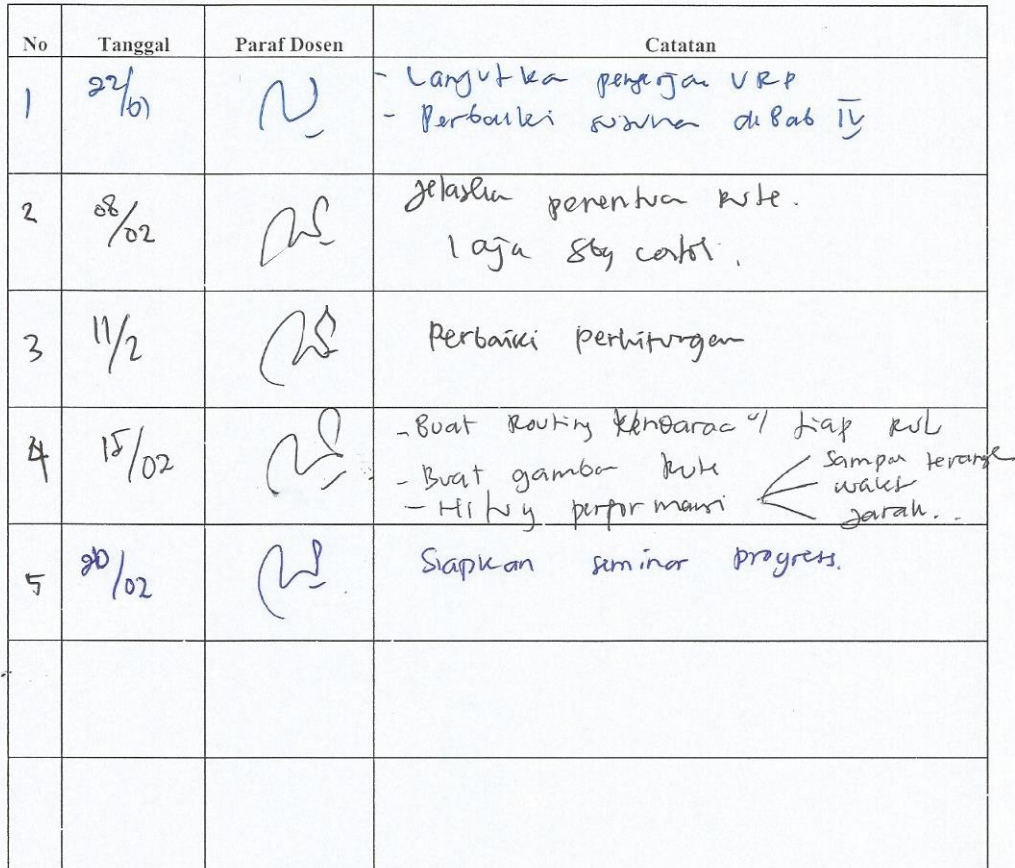 No Tanggal Paraf Dosen Catatan
1 22/01 - Langutka pengerjan VRP
- Perbaiki susuna di Bab IV
2 08/02 Jelaska penentua rute.
1 aja sbg contoh.
3 11/2 Perbaiki perhitungan
4 15/02 - Buat Routing kendaraa u/ tiap rute
- Buat gambar rute
- Hitung performansi
Sampah terangk
waktu
Jarak..
5 20/02 Siapkan seminar progress.